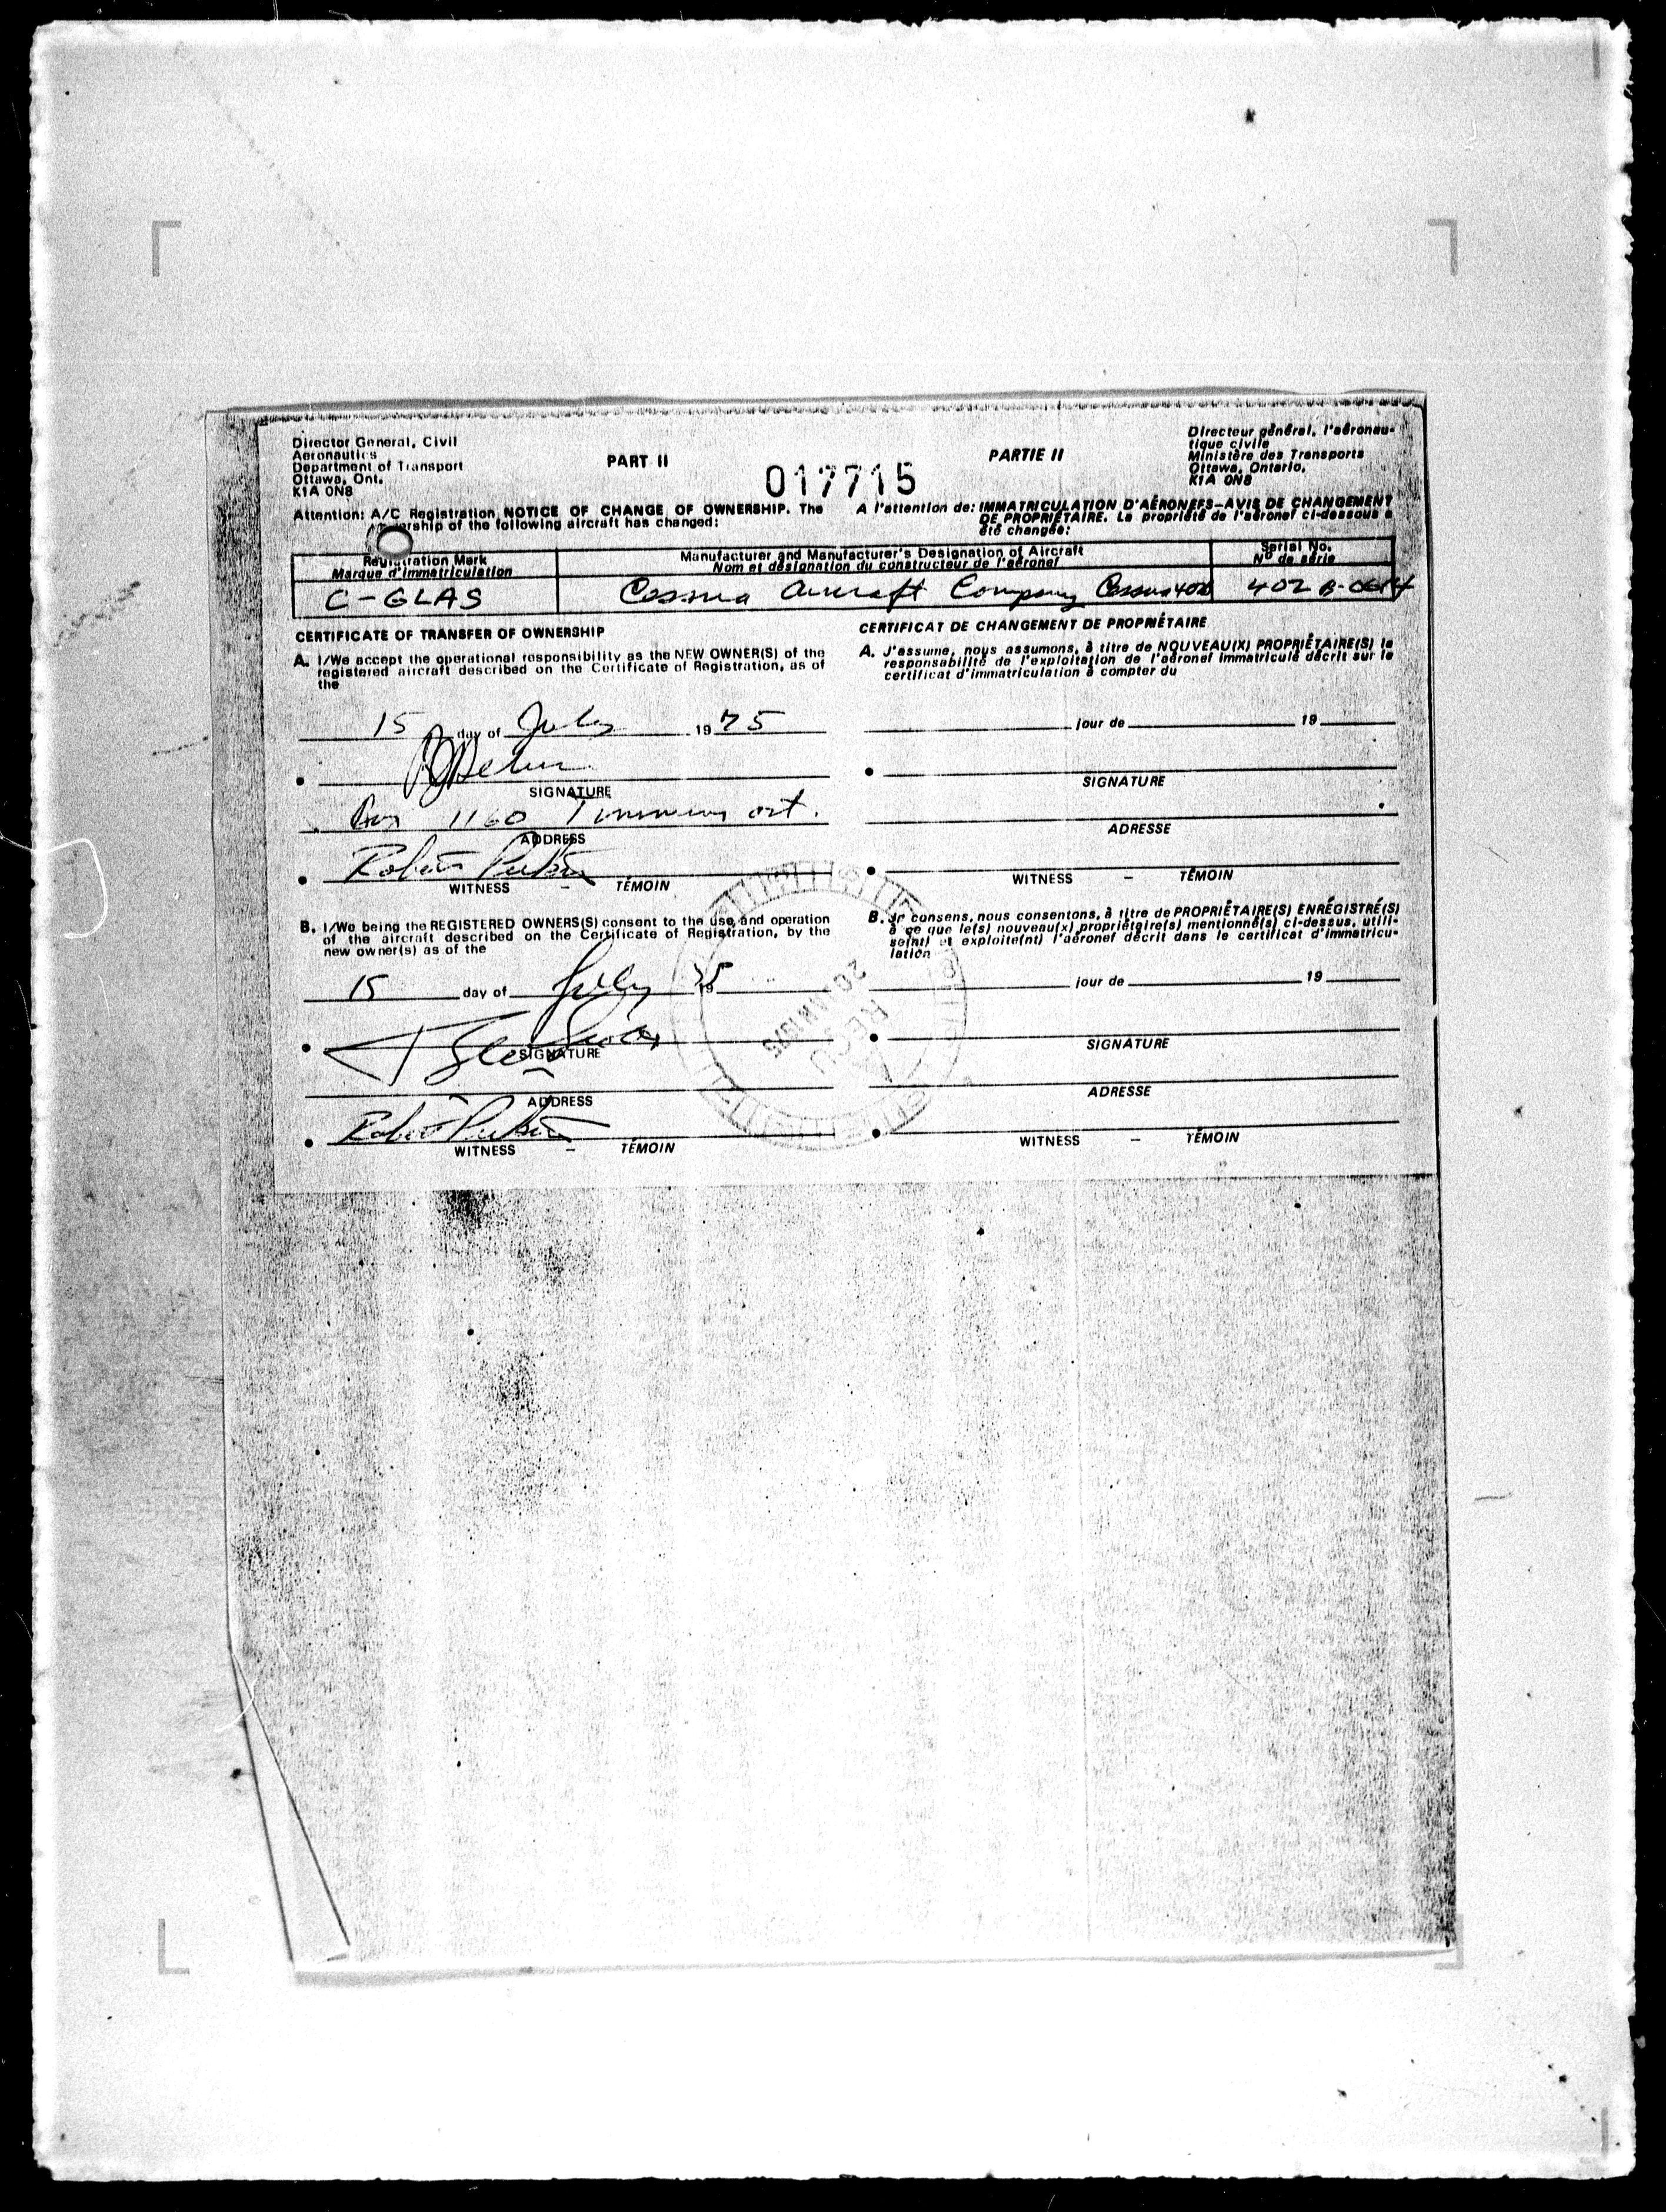 Director General, Civil
Aeronautics
Department of Transport
Ottawa, Ont.
K1A 0N8
PART II
017715
PARTIE II
Directeur général, l'aéronau-
tique civile
Ministère des Transports
Ottawa, Ontario,
K1A 0N8
Attention: A/C Registration NOTICE OF CHANGE OF OWNERSHIP. The
ership of the following aircraft has changed:
A l'attention de: IMMATRICULATION D'AÉRONEFS–AVIS DE CHANGEMENT
DE PROPRIÉTAIRE. La propriété de l'aéronef ci-dessous a
été changée:
Registration Mark
Marque d'immatriculation
Manufacturer and Manufacturer's Designation of Aircraft
Nom et désignation du constructeur de l'aéronef
Serial No.
Nº de série
C-GLAS
Cessna Aircraft Company Cessna
402 B-
CERTIFICATE OF TRANSFER OF OWNERSHIP
A. I/We accept the operational responsibility as the NEW OWNER(S) of the
registered aircraft described on the Certificate of Registration, as of
the
15 day of July 1975
SIGNATURE
Box 1160 Timmins ont.
ADDRESS
Robert
WITNESS – TÉMOIN
B. I/We being the REGISTERED OWNERS(S) consent to the use and operation
of the aircraft described on the Certificate of Registration, by the
new owner(s) as of the
15 day of July 1975
SIGNATURE
ADDRESS
Robert
WITNESS – TÉMOIN
CERTIFICAT DE CHANGEMENT DE PROPRIÉTAIRE
A. J'assume, nous assumons, à titre de NOUVEAU(X) PROPRIÉTAIRE(S) la
responsabilité de l'exploitation de l'aéronef immatriculé décrit sur le
certificat d'immatriculation à compter du
jour de 19
SIGNATURE
ADRESSE
WITNESS – TÉMOIN
B. Je consens, nous consentons, à titre de PROPRIÉTAIRE(S) ENRÉGISTRÉ(S)
à ce que le(s) nouveau(x) propriétaire(s) mentionné(s) ci-dessus, utili-
se(nt) et exploite(nt) l'aéronef décrit dans le certificat d'immatricu-
lation
jour de 19
SIGNATURE
ADRESSE
WITNESS – TÉMOIN
REÇU